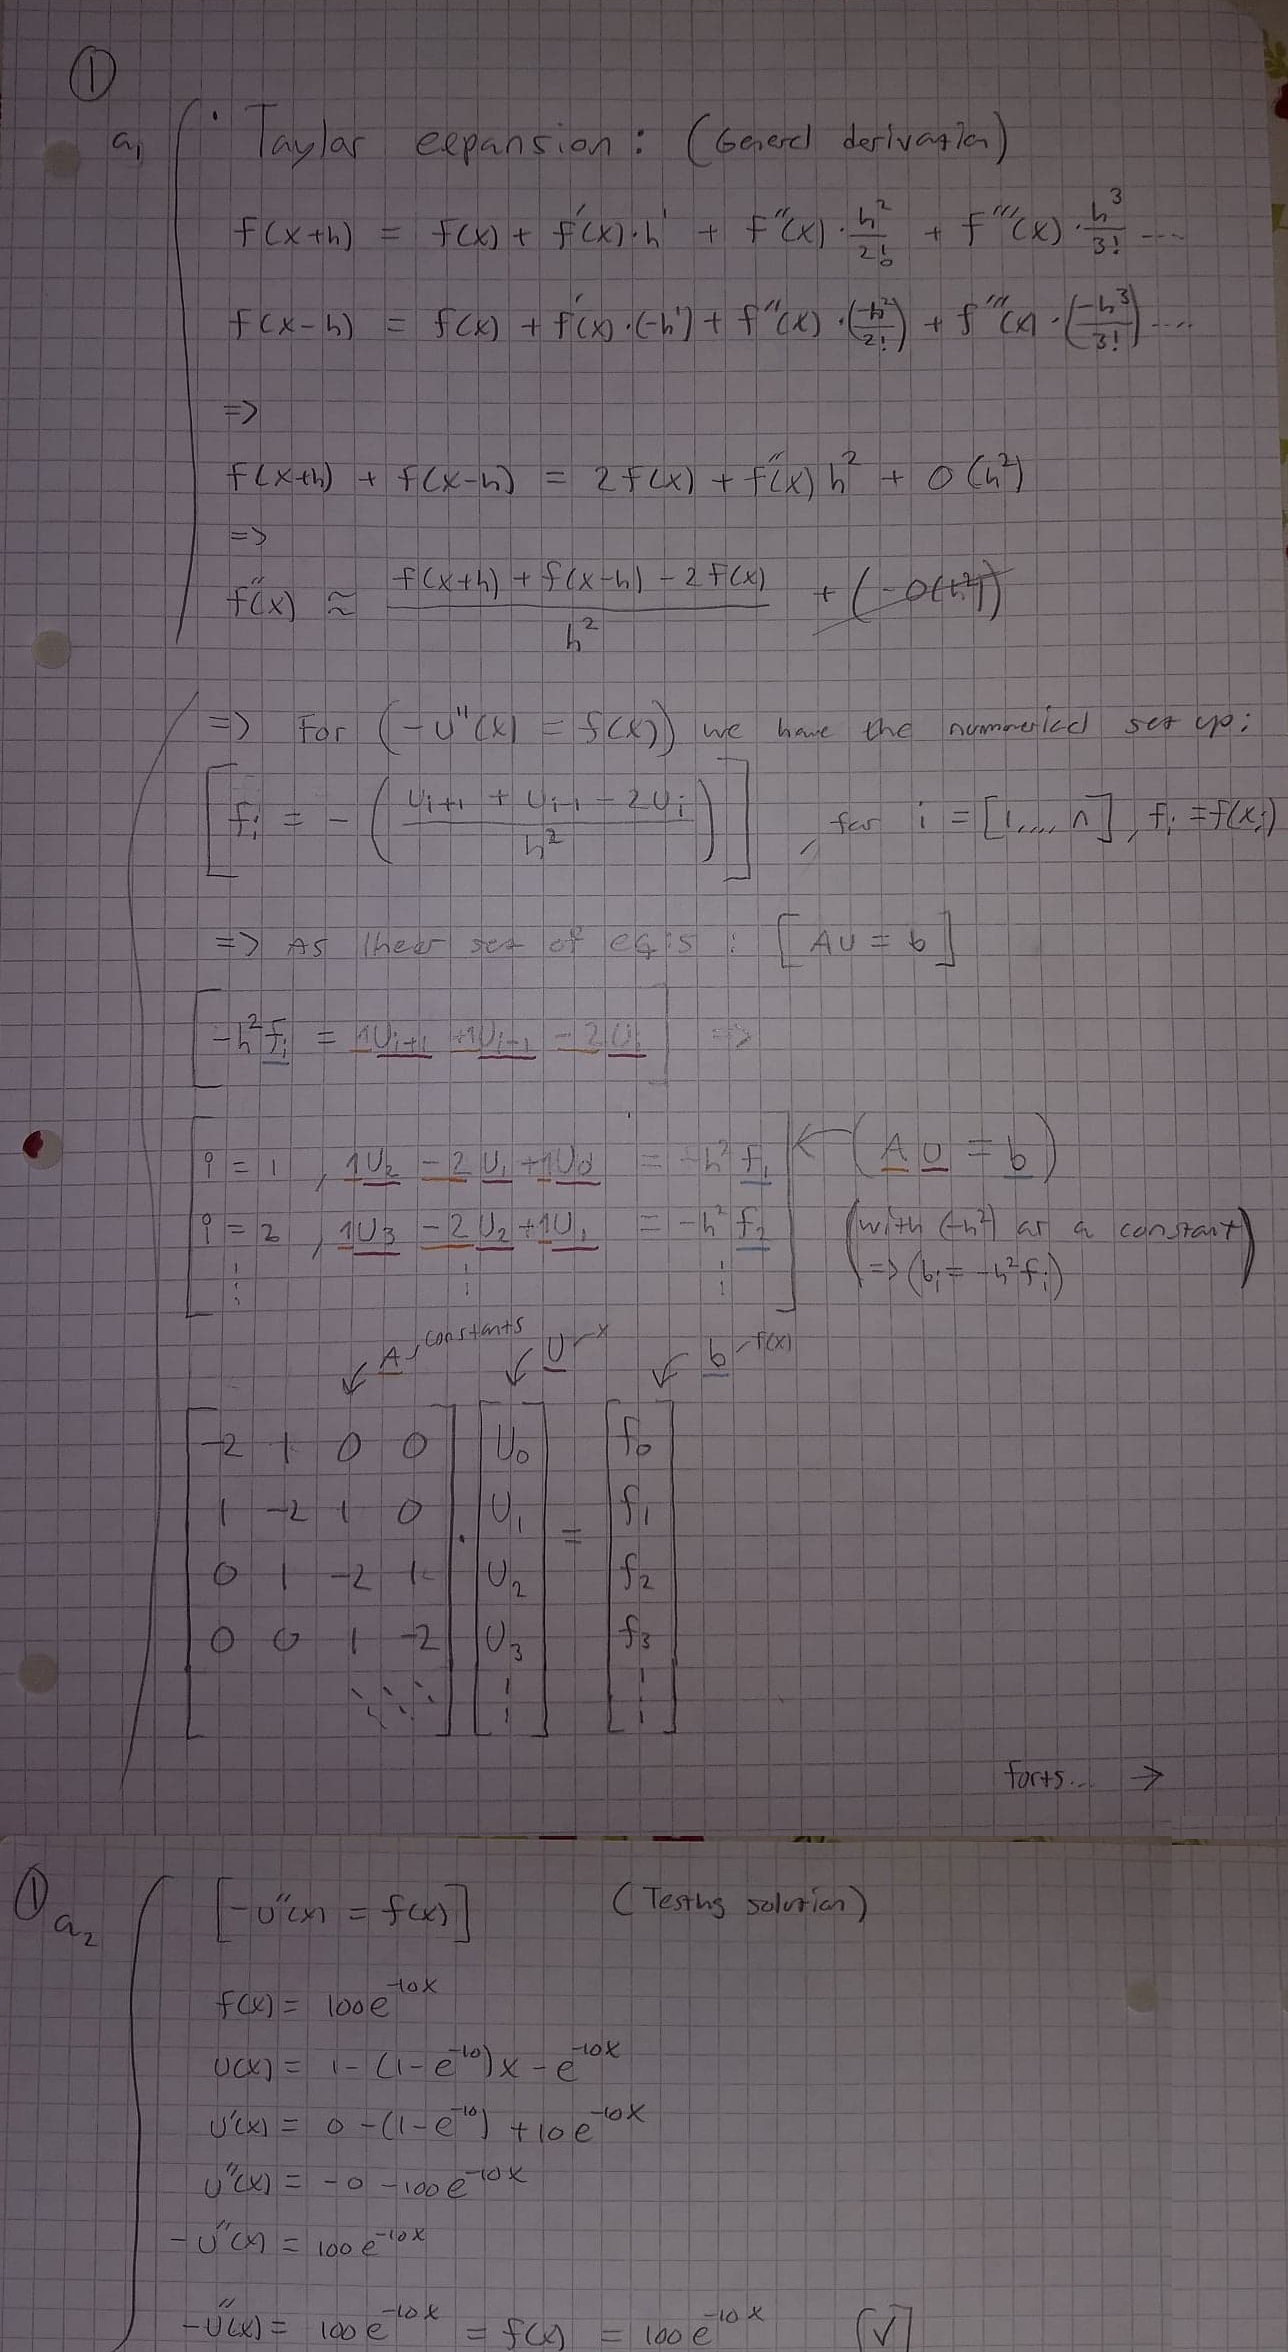 ①
a₁
• Taylor expansion: (General derivation)
f(x+h) = f(x) + f'(x)·h' + f''(x)·h²/2! + f'''(x)·h³/3! ...
f(x-h) = f(x) + f'(x)·(-h') + f''(x)·(-h²/2!) + f'''(x)·(-h³/3!) ....
=>
f(x+h) + f(x-h) = 2f(x) + f''(x)h² + O(h²)
=>
f''(x) ≈ (f(x+h) + f(x-h) - 2f(x))/h² + (-O(h²))
=> For (-u''(x) = f(x)) we have the nummerical set up:
[fᵢ = -((Uᵢ₊₁ + Uᵢ₋₁ - 2Uᵢ)/h²)], for i = [1,...,n], fᵢ = f(xᵢ)
=> As linear set of eq:s : [AU = b]
[-h²fᵢ = 1Uᵢ₊₁ +1Uᵢ₋₁ -2Uᵢ] =>
i = 1, 1U₂ -2U₁ +1U₀ = -h² f₁ ← (A U = b)
i = 2, 1U₃ -2U₂ +1U₁ = -h² f₂ (with (-h²) as a constant)
⋮ ⋮ ⋮ => (bᵢ = -h²fᵢ)
A, constants U - x b - f(x)
[-2 1 0 0] [U₀] [f₀]
[1 -2 1 0] [U₁] [f₁]
[0 1 -2 1] · [U₂] = [f₂]
[0 0 1 -2] [U₃] [f₃]
⋱ ⋮ ⋮
forts... →
①
a₂
[-u''(x) = f(x)] (Testing solution)
f(x) = 100e^-10x
u(x) = 1-(1-e^-10)x - e^-10x
u'(x) = 0 -(1-e^-10) + 10e^-10x
u''(x) = -0 -100e^-10x
-u''(x) = 100e^-10x
-u''(x) = 100e^-10x = f(x) = 100e^-10x [√]